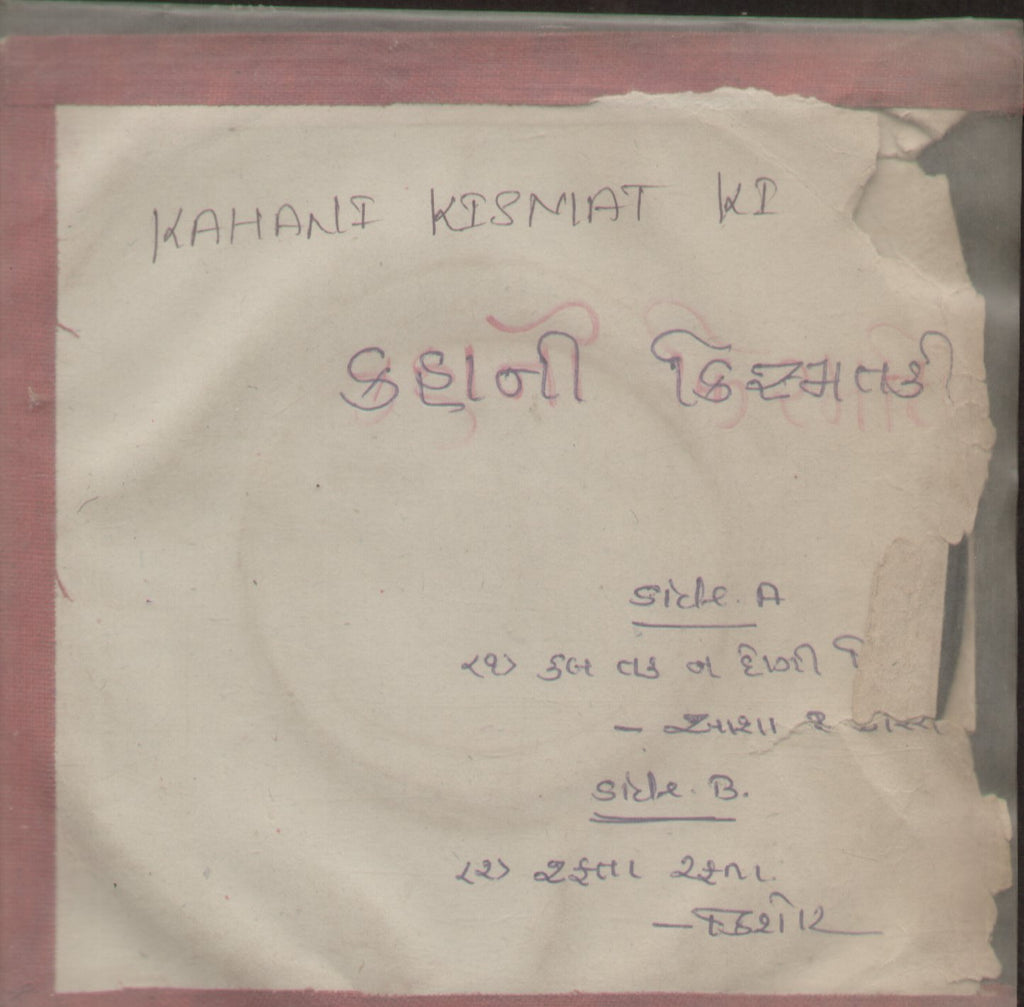 KAHANI KISMAT KI
કહાની કિસ્મતકી
A
(૧) કલ તક ન દેખી
- આશા
B.
(૨) રફતા રફતા
- કિશોર